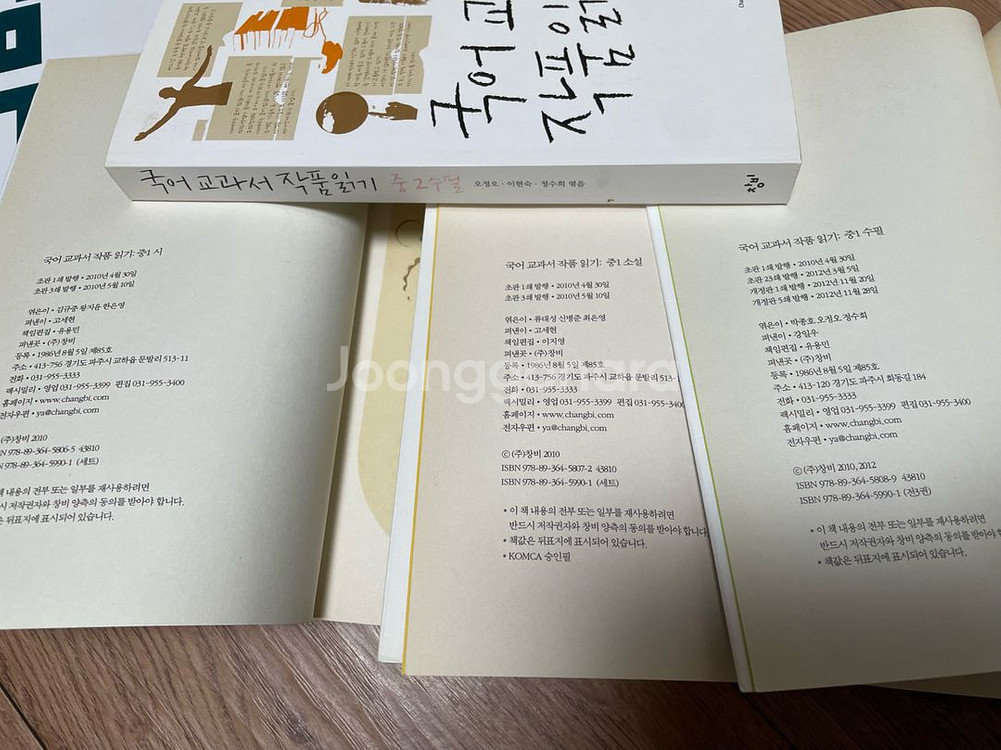 국어 교
작품읽
국어 교과서 작품읽기 중2수필 오정오·이현숙·정수희 엮음 창비
국어 교과서 작품 읽기: 중1 시
초판 1쇄 발행 • 2010년 4월 30일
초판 3쇄 발행 • 2010년 5월 10일
엮은이 • 김규중 왕지윤 한은영
펴낸이 • 고세현
책임편집 • 유용민
펴낸곳 • (주)창비
등록 • 1986년 8월 5일 제85호
주소 • 413-756 경기도 파주시 교하읍 문발리 513-11
전화 • 031-955-3333
팩시밀리 • 영업 031-955-3399 편집 031-955-3400
홈페이지 • www.changbi.com
전자우편 • ya@changbi.com
(주)창비 2010
N 978-89-364-5806-5 43810
N 978-89-364-5990-1 (세트)
책 내용의 전부 또는 일부를 재사용하려면
시 저작권자와 창비 양측의 동의를 받아야 합니다.
은 뒤표지에 표시되어 있습니다.
국어 교과서 작품 읽기: 중1 소설
초판 1쇄 발행 • 2010년 4월 30일
초판 3쇄 발행 • 2010년 5월 10일
엮은이 • 류대성 신병준 최은영
펴낸이 • 고세현
책임편집 • 이지영
펴낸곳 • (주)창비
등록 • 1986년 8월 5일 제85호
주소 • 413-756 경기도 파주시 교하읍 문발리 513-1
전화 • 031-955-3333
팩시밀리 • 영업 031-955-3399 편집 031-955-340
홈페이지 • www.changbi.com
전자우편 • ya@changbi.com
ⓒ (주)창비 2010
ISBN 978-89-364-5807-2 43810
ISBN 978-89-364-5990-1 (세트)
• 이 책 내용의 전부 또는 일부를 재사용하려면
반드시 저작권자와 창비 양측의 동의를 받아야 합니다.
• 책값은 뒤표지에 표시되어 있습니다.
• KOMCA 승인필
국어 교과서 작품 읽기: 중1 수필
초판 1쇄 발행 • 2010년 4월 30일
초판 23쇄 발행 • 2012년 3월 5일
개정판 1쇄 발행 • 2012년 11월 20일
개정판 5쇄 발행 • 2012년 11월 28일
엮은이 • 박종호 오정오 정수희
펴낸이 • 강일우
책임편집 • 유용민
펴낸곳 • (주)창비
등록 • 1986년 8월 5일 제85호
주소 • 413-120 경기도 파주시 회동길 184
전화 • 031-955-3333
팩시밀리 • 영업 031-955-3399 편집 031-955-3400
홈페이지 • www.changbi.com
전자우편 • ya@changbi.com
ⓒ (주)창비 2010, 2012
ISBN 978-89-364-5808-9 43810
ISBN 978-89-364-5990-1 (전3권)
• 이 책 내용의 전부 또는 일부를 재사용하려면
반드시 저작권자와 창비 양측의 동의를 받아야
• 책값은 뒤표지에 표시되어 있습니다.
Joongg